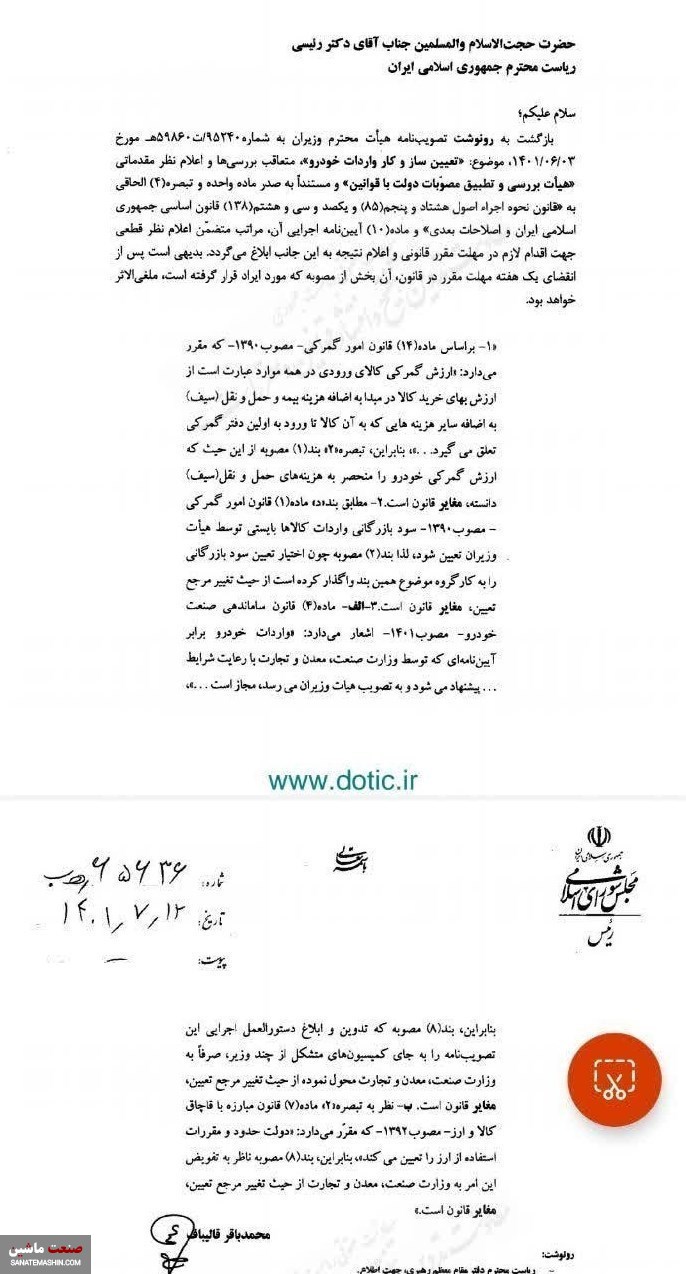 حضرت حجت‌الاسلام والمسلمین جناب آقای دکتر رئیسی
ریاست محترم جمهوری اسلامی ایران
سلام علیکم؛
بازگشت به رونوشت تصویب‌نامه هیأت محترم وزیران به شماره۹۵۲۴۰/ت۵۹۸۶۰هـ مورخ
۱۴۰۱/۰۶/۰۳، موضوع: «تعیین ساز و کار واردات خودرو»، متعاقب بررسی‌ها و اعلام نظر مقدماتی
«هیأت بررسی و تطبیق مصوّبات دولت با قوانین» و مستنداً به صدر ماده واحده و تبصره(۴) الحاقی
به «قانون نحوه اجراء اصول هشتاد و پنجم(۸۵) و یکصد و سی و هشتم(۱۳۸) قانون اساسی جمهوری
اسلامی ایران و اصلاحات بعدی» و ماده(۱۰) آیین‌نامه اجرایی آن، مراتب متضمّن اعلام نظر قطعی
جهت اقدام لازم در مهلت مقرر قانونی و اعلام نتیجه به این جانب ابلاغ می‌گردد. بدیهی است پس از
انقضای یک هفته مهلت مقرر در قانون، آن بخش از مصوبه که مورد ایراد قرار گرفته است، ملغی‌الاثر
خواهد بود.
«۱- براساس ماده(۱۴) قانون امور گمرکی- مصوب۱۳۹۰- که مقرر
می‌دارد: «ارزش گمرکی کالای ورودی در همه موارد عبارت است از
ارزش بهای خرید کالا در مبدا به اضافه هزینه بیمه و حمل و نقل (سیف)
به اضافه سایر هزینه هایی که به آن کالا تا ورود به اولین دفتر گمرکی
تعلق می گیرد. ...»، بنابراین، تبصره«۲» بند(۱) مصوبه از این حیث که
ارزش گمرکی خودرو را منحصر به هزینه‌های حمل و نقل(سیف)
دانسته، مغایر قانون است.۲- مطابق بند«د» ماده(۱) قانون امور گمرکی
- مصوب۱۳۹۰- سود بازرگانی واردات کالاها بایستی توسط هیأت
وزیران تعیین شود، لذا بند(۲) مصوبه چون اختیار تعیین سود بازرگانی
را به کارگروه موضوع همین بند واگذار کرده است از حیث تغییر مرجع
تعیین، مغایر قانون است.۳-الف- ماده(۴) قانون ساماندهی صنعت
خودرو- مصوب۱۴۰۱- اشعار می‌دارد: «واردات خودرو برابر
آیین‌نامه‌ای که توسط وزارت صنعت، معدن و تجارت با رعایت شرایط
... پیشنهاد می شود و به تصویب هیات وزیران می رسد، مجاز است ...»،
www.dotic.ir
جمهوری اسلامی ایران
مجلس شورای اسلامی
رئیس
باسمه تعالی
شماره: ۶۵۶۳۶
تاریخ: ۱۴۰۱/۷/۱۲
پیوست: —
بنابراین، بند(۸) مصوبه که تدوین و ابلاغ دستورالعمل اجرایی این
تصویب‌نامه را به جای کمیسیون‌های متشکل از چند وزیر، صرفاً به
وزارت صنعت، معدن و تجارت محول نموده از حیث تغییر مرجع تعیین،
مغایر قانون است. ب- نظر به تبصره«۲» ماده(۷) قانون مبارزه با قاچاق
کالا و ارز- مصوب۱۳۹۲- که مقرّر می‌دارد: «دولت حدود و مقررات
استفاده از ارز را تعیین می کند»، بنابراین، بند(۸) مصوبه ناظر به تفویض
این امر به وزارت صنعت، معدن و تجارت از حیث تغییر مرجع تعیین،
مغایر قانون است.»
محمدباقر قالیباف
رونوشت:
- ریاست محترم دفتر مقام معظم رهبری، جهت اطلاع.
صنعت ماشین
SANATEMASHIN.COM